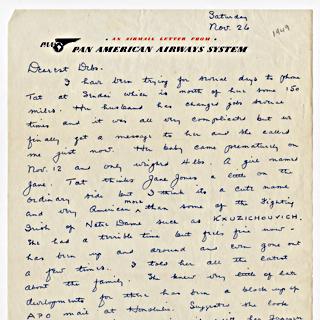 Saturday
Nov. 26
1949
• AN AIRMAIL LETTER FROM •
PAN AMERICAN AIRWAYS SYSTEM
Dearest Debs.
I have been trying for several days to phone
Tat at Sendai which is north of here some 150
miles. Her husband has changed jobs several
times and it was all very complicated but we
finally got a message to her and she called
me just now. Her baby came prematurely on
Nov. 12 and only weighed 4 lbs. A girl named
Jane. Tat thinks Jane Jones a little on the
ordinary side but I think its a cute name
and very more American than some of the Fighting
Irish of Notre Dame such as KXUZICHOUVICH.
She had a terrible time but feels fine now -
has been up and around and even gone out
a few times. I told her all the latest
about the family. She knew very little of late
developments for there has been a block up of
APO mail at Honolulu. Suggests she look